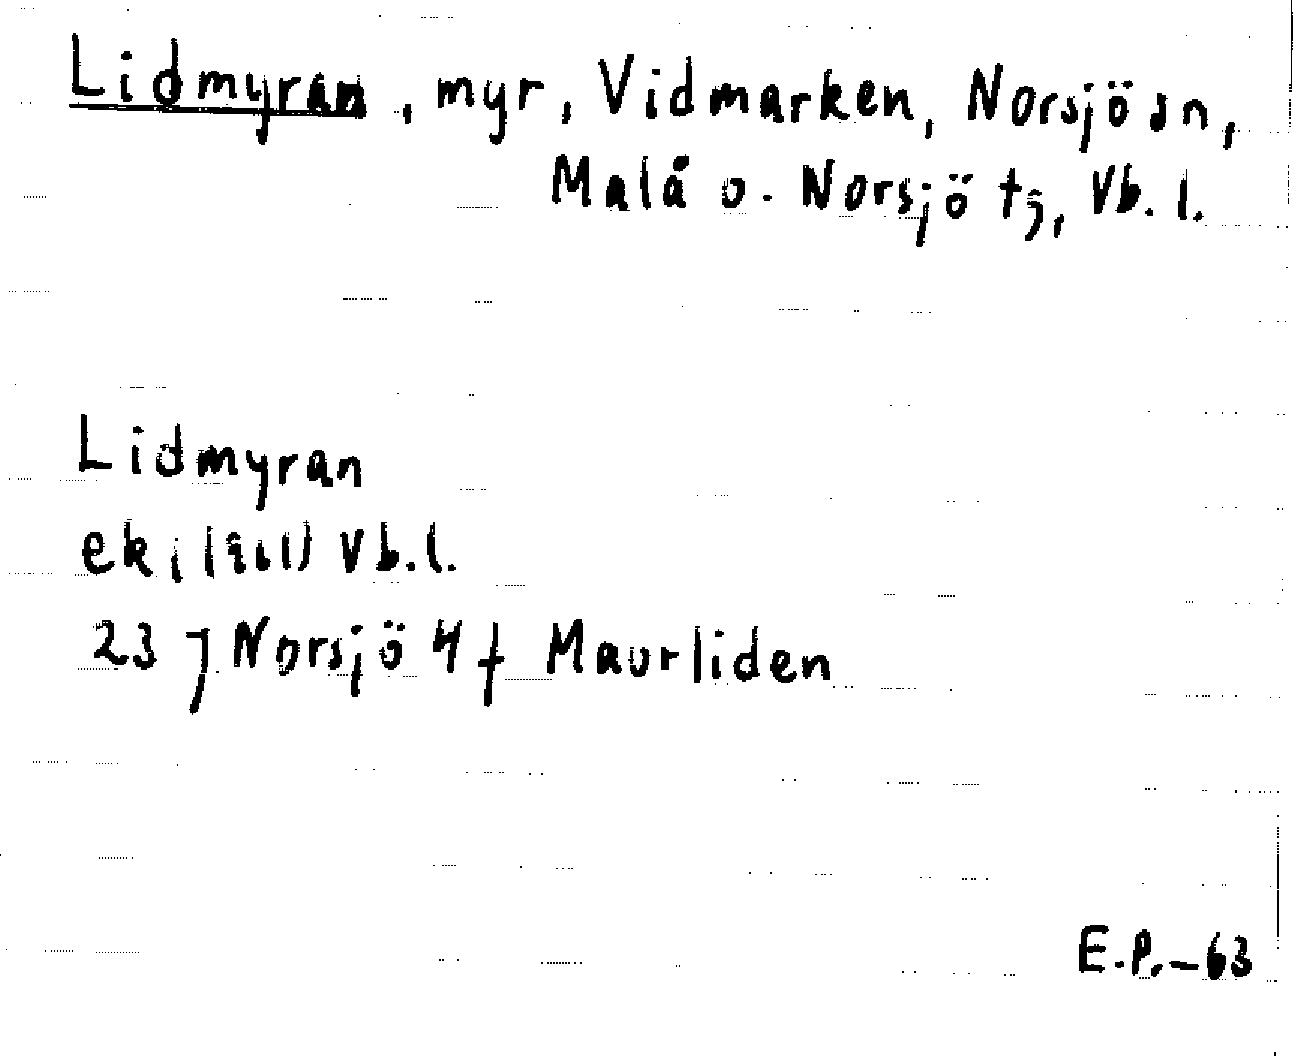 Lidmyran, myr, Vidmarken, Norsjö sn,
Malå o. Norsjö tg, Vb. l.
Lidmyran
ek (1961) Vb.l.
23 J Norsjö 4 f Maurliden
E.P.–63